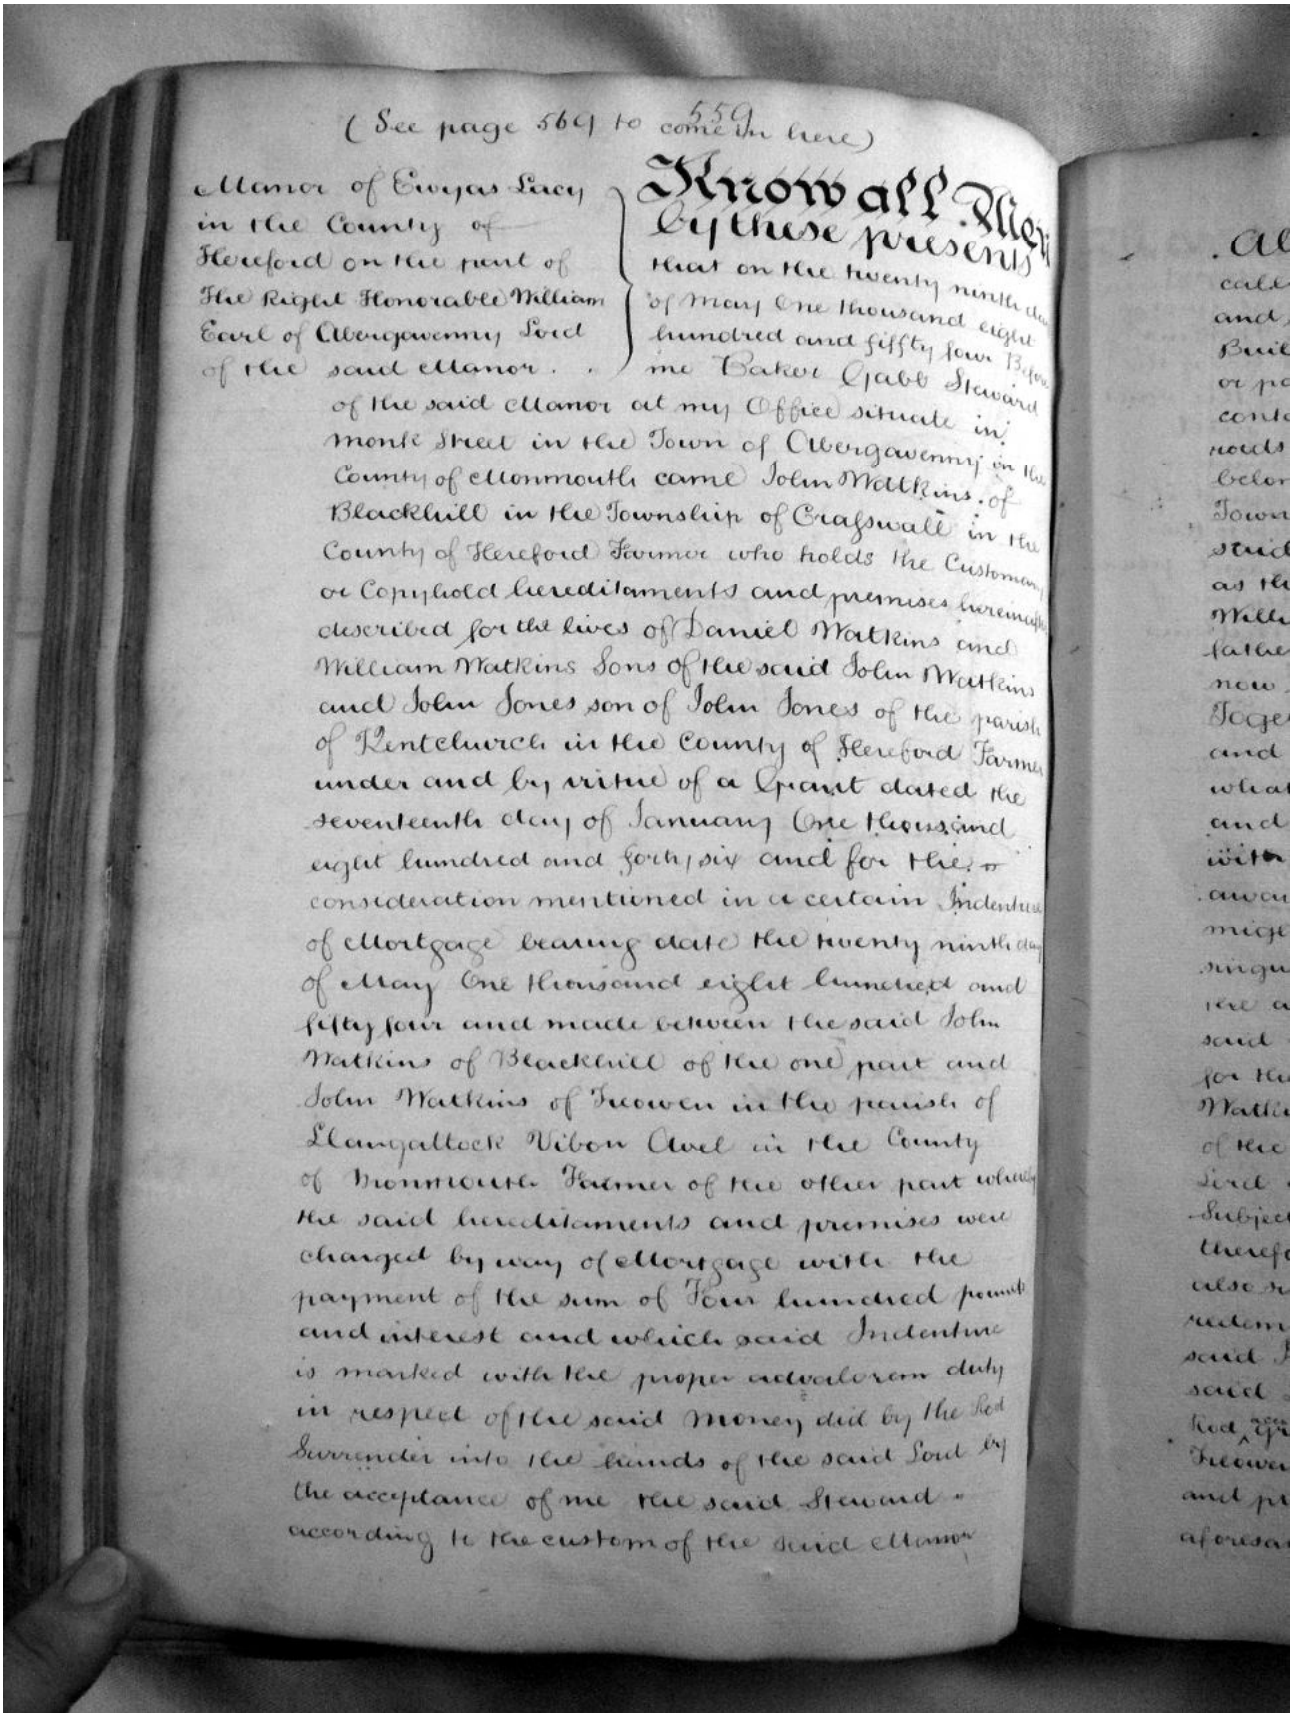 559
(See page 569 to come in here)
Manor of Ewyas Lacy
in the County of
Hereford on the part of
The Right Honorable William
Earl of Abergavenny Lord
of the said Manor . .
Know all Men
by these presents
that on the twenty ninth day
of May One thousand eight
hundred and fiffty four Before
me Baker Gabb Steward
of the said Manor at my Office situate in
Monk Street in the Town of Abergavenny in the
County of Monmouth came John Watkins of
Blackhill in the Township of Crasswall in the
County of Hereford Farmer who holds the Customary
or Copyhold hereditaments and premises hereinafter
described for the lives of Daniel Watkins and
William Watkins Sons of the said John Watkins
and John Jones son of John Jones of the parish
of Kentchurch in the County of Hereford Farmer
under and by virtue of a Grant dated the
seventeenth day of January One thousand
eight hundred and forty six and for the
consideration mentioned in a certain Indenture
of Mortgage bearing date the twenty ninth day
of May One thousand eight hundred and
fifty four and made between the said John
Watkins of Blackhill of the one part and
John Watkins of Treowen in the parish of
Llangattock Vibon Avel in the County
of Monmouth Farmer of the other part whereby
the said hereditaments and premises were
charged by way of Mortgage with the
payment of the sum of Four hundred pounds
and interest and which said Indenture
is marked with the proper advalorem duty
in respect of the said Money did by the Rod
Surrender into the hands of the said Lord by
the acceptance of me the said Steward
according to the custom of the said Manor
and
or
roads
Town
said
as the
now
and
and
with
the
said
for the
of the
also
said
said
Rod
Treowen
and